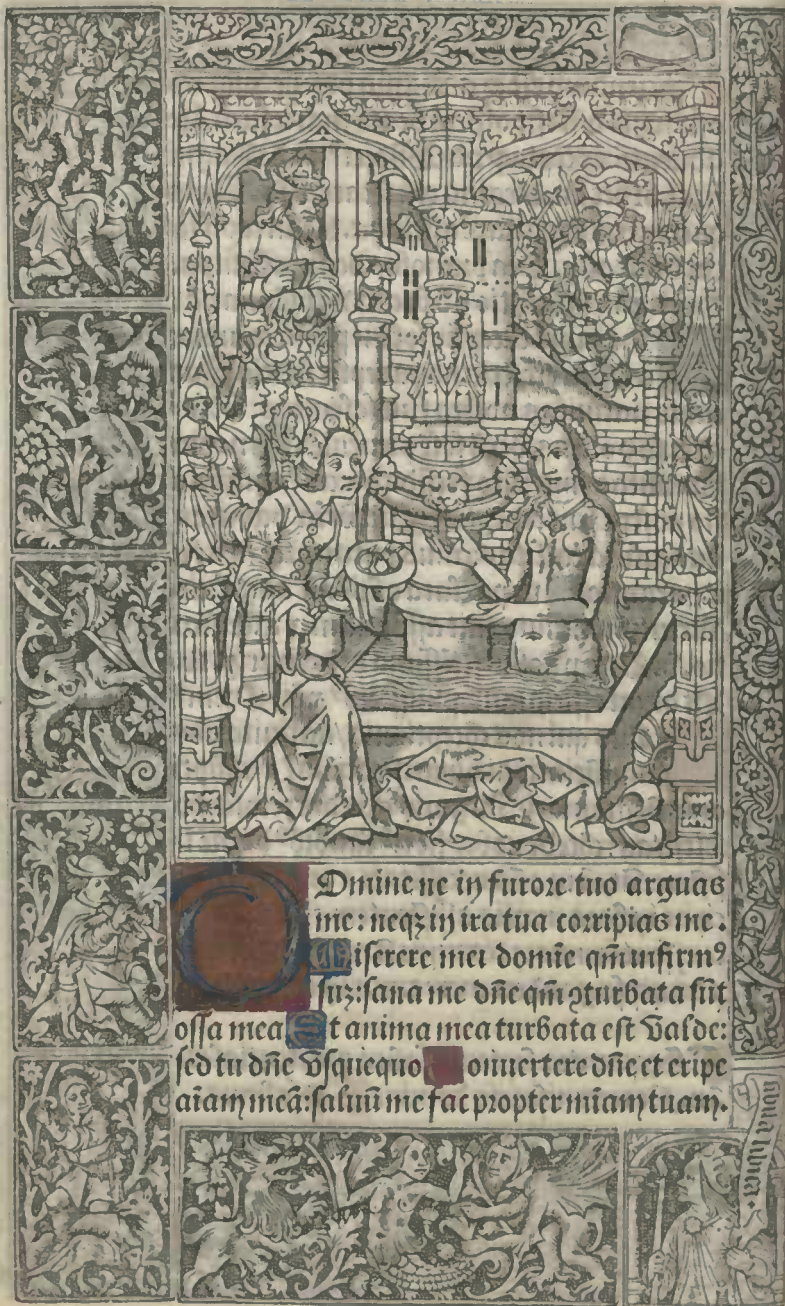 Domine ne in furore tuo arguas
me: neqꝫ in ira tua corripias me.
Miserere mei domīe qm̄ infirmꝰ
suꝫ: sana me dn̄e qm̄ ꝯturbata sūt
ossa mea Et anima mea turbata est valde:
sed tu dn̄e vsquequo Conuertere dn̄e et eripe
aīam meā: saluū me fac propter mīam tuam.